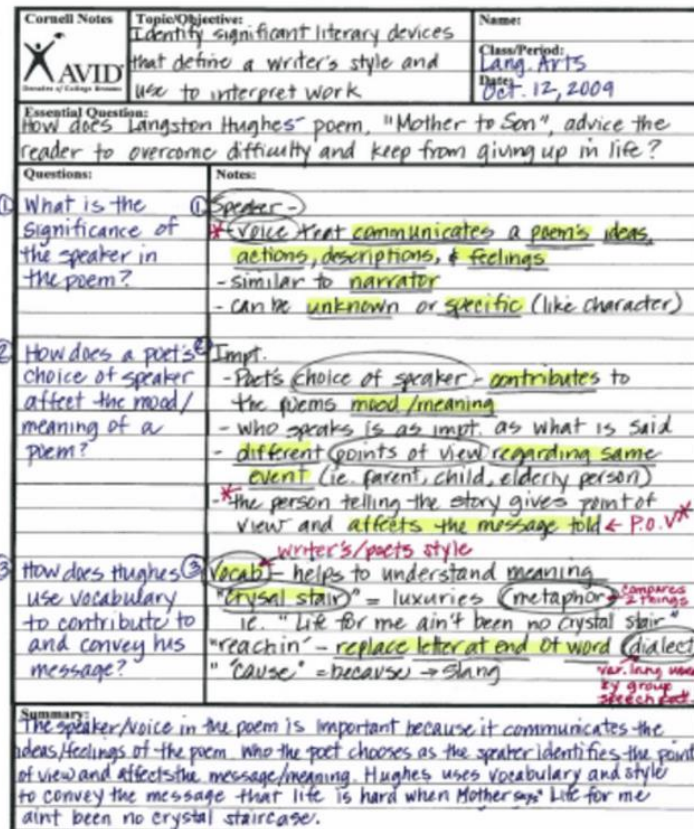 Cornell Notes
AVID
Decades of College Dreams
Topic/Objective:
Identify significant literary devices
that define a writer's style and
use to interpret work
Name:
Class/Period:
Lang. Arts
Date:
Oct. 12, 2009
Essential Question:
How does Langston Hughes' poem, "Mother to Son", advice the
reader to overcome difficulty and keep from giving up in life?
Questions:
① What is the
significance of
the speaker in
the poem?
2 How does a poet's
choice of speaker
affect the mood/
meaning of a
poem?
3 How does Hughes
use vocabulary
to contribute to
and convey his
message?
Notes:
① Speaker -
* - voice that communicates a poem's ideas,
actions, descriptions, & feelings
- similar to narrator
- can be unknown or specific (like character)
② Impt.
- Poet's choice of speaker - contributes to
the poems mood/meaning
- who speaks is as impt. as what is said
- different points of view regarding same
event (ie. parent, child, elderly person)
- * the person telling the story gives point of
view and affects the message told ← P.O.V *
writer's/poets style
③ Vocab - helps to understand meaning
"crysal stair" = luxuries (metaphor) compares
2 things
ie. "Life for me ain't been no crystal stair"
"reachin" - replace letter at end of word (dialect
" "cause" = because → slang
var. lang used
by group
speech
Summary:
The speaker/voice in the poem is important because it communicates the
ideas/feelings of the poem. Who the poet chooses as the speaker identifies the point
of view and affects the message/meaning. Hughes uses vocabulary and style
to convey the message that life is hard when Mother says" Life for me
aint been no crystal staircase.